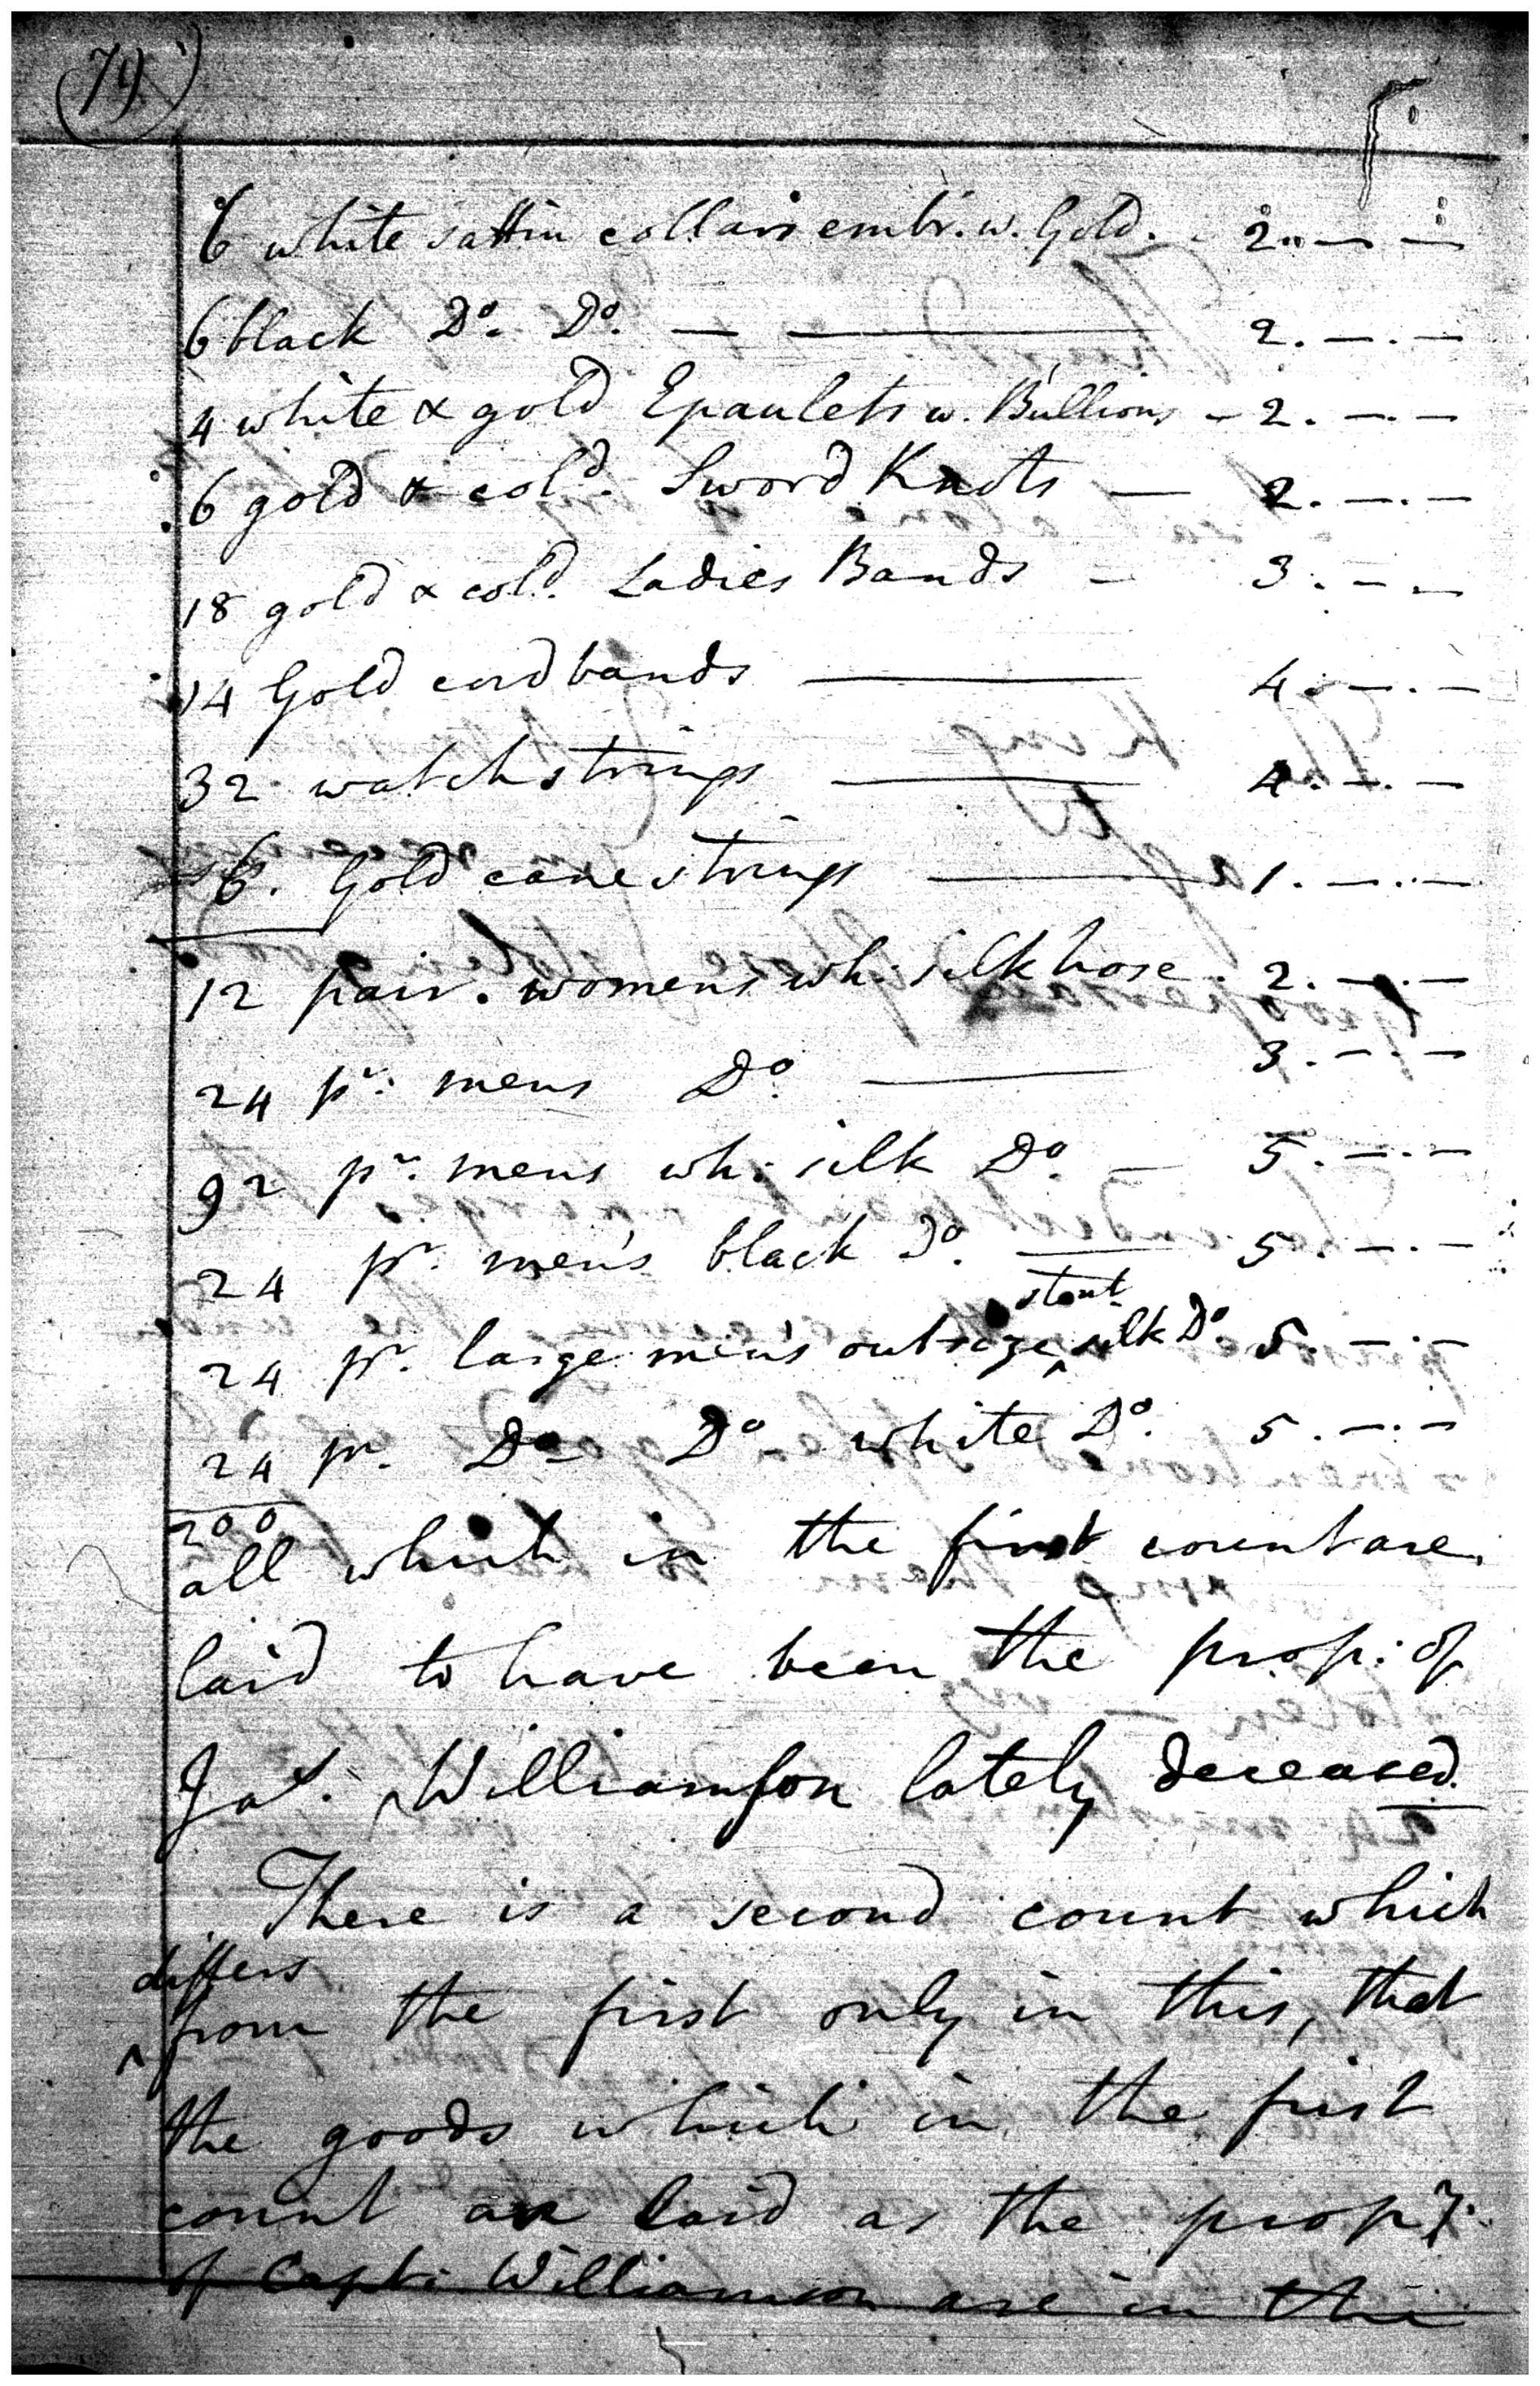 79
6 white sattin collars embr. w. Gold. 2. — —
6 black Do. Do. — — 2. —. —
4 white & gold Epaulets w. Bullions — 2. —. —
6 gold & cold. Sword Knots — 2. —. —
18 gold & cold. Ladies Bands — 3. — —
14 Gold cord bands — 4. —. —
32 watch strings — 4. —. —
6. Gold cane strings — 1. —. —
12 pair. womens wh. silk hose. 2. —. —
24 pr. mens Do. — 3. —. —
92 pr. mens wh. silk Do. — 5. —. —
24 pr. men's black Do. — 5. —. —
stout
24 pr. large men's outsize ^ silk Do. 5. —. —
24 pr. Do Do white Do. 5. —. —
200
all which in the first count are
laid to have been the prop: of
Jas. Williamson lately deceased.
There is a second count which
differs
^ from the first only in this, that
the goods which in the first
count are laid as the propy.
of Capt. Williamson are in the